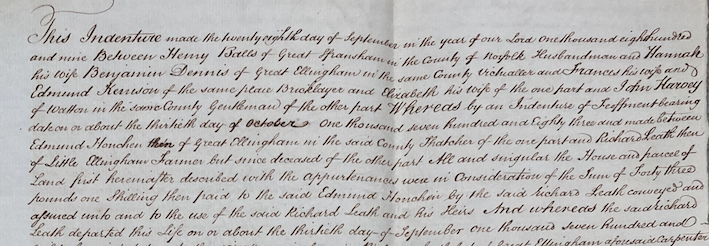 This Indenture made the twenty eighth day of September in the year of our Lord one thousand eight hundred
and nine Between Henry Balls of Great Fransham in the County of Norfolk Husbandman and Hannah
his wife Benjamin Dennis of Great Ellingham in the same County Victualler and Frances his wife and
Edmund Kerrison of the same place Bricklayer and Elizabeth his wife of the one part and John Harvey
of Watton in the same County Gentleman of the other part Whereas by an Indenture of Feoffment bearing
date on or about the thirtieth day of October One thousand seven hundred and Eighty three and made between
Edmund Honchen then of Great Ellingham in the said County Thatcher of the one part and Richard Leath then
of Little Ellingham Farmer but since deceased of the other part All and singular the House and parcel of
Land first hereinafter described with the Appurtenances were in Consideration of the Sum of Forty three
pounds one Shilling then paid to the said Edmund Honchen by the said Richard Leath conveyed and
assured unto and to the use of the said Richard Leath and his Heirs And whereas the said Richard
Leath departed this Life on or about the thirtieth day of September one thousand seven hundred and
Great Ellingham aforesaid Carpenter